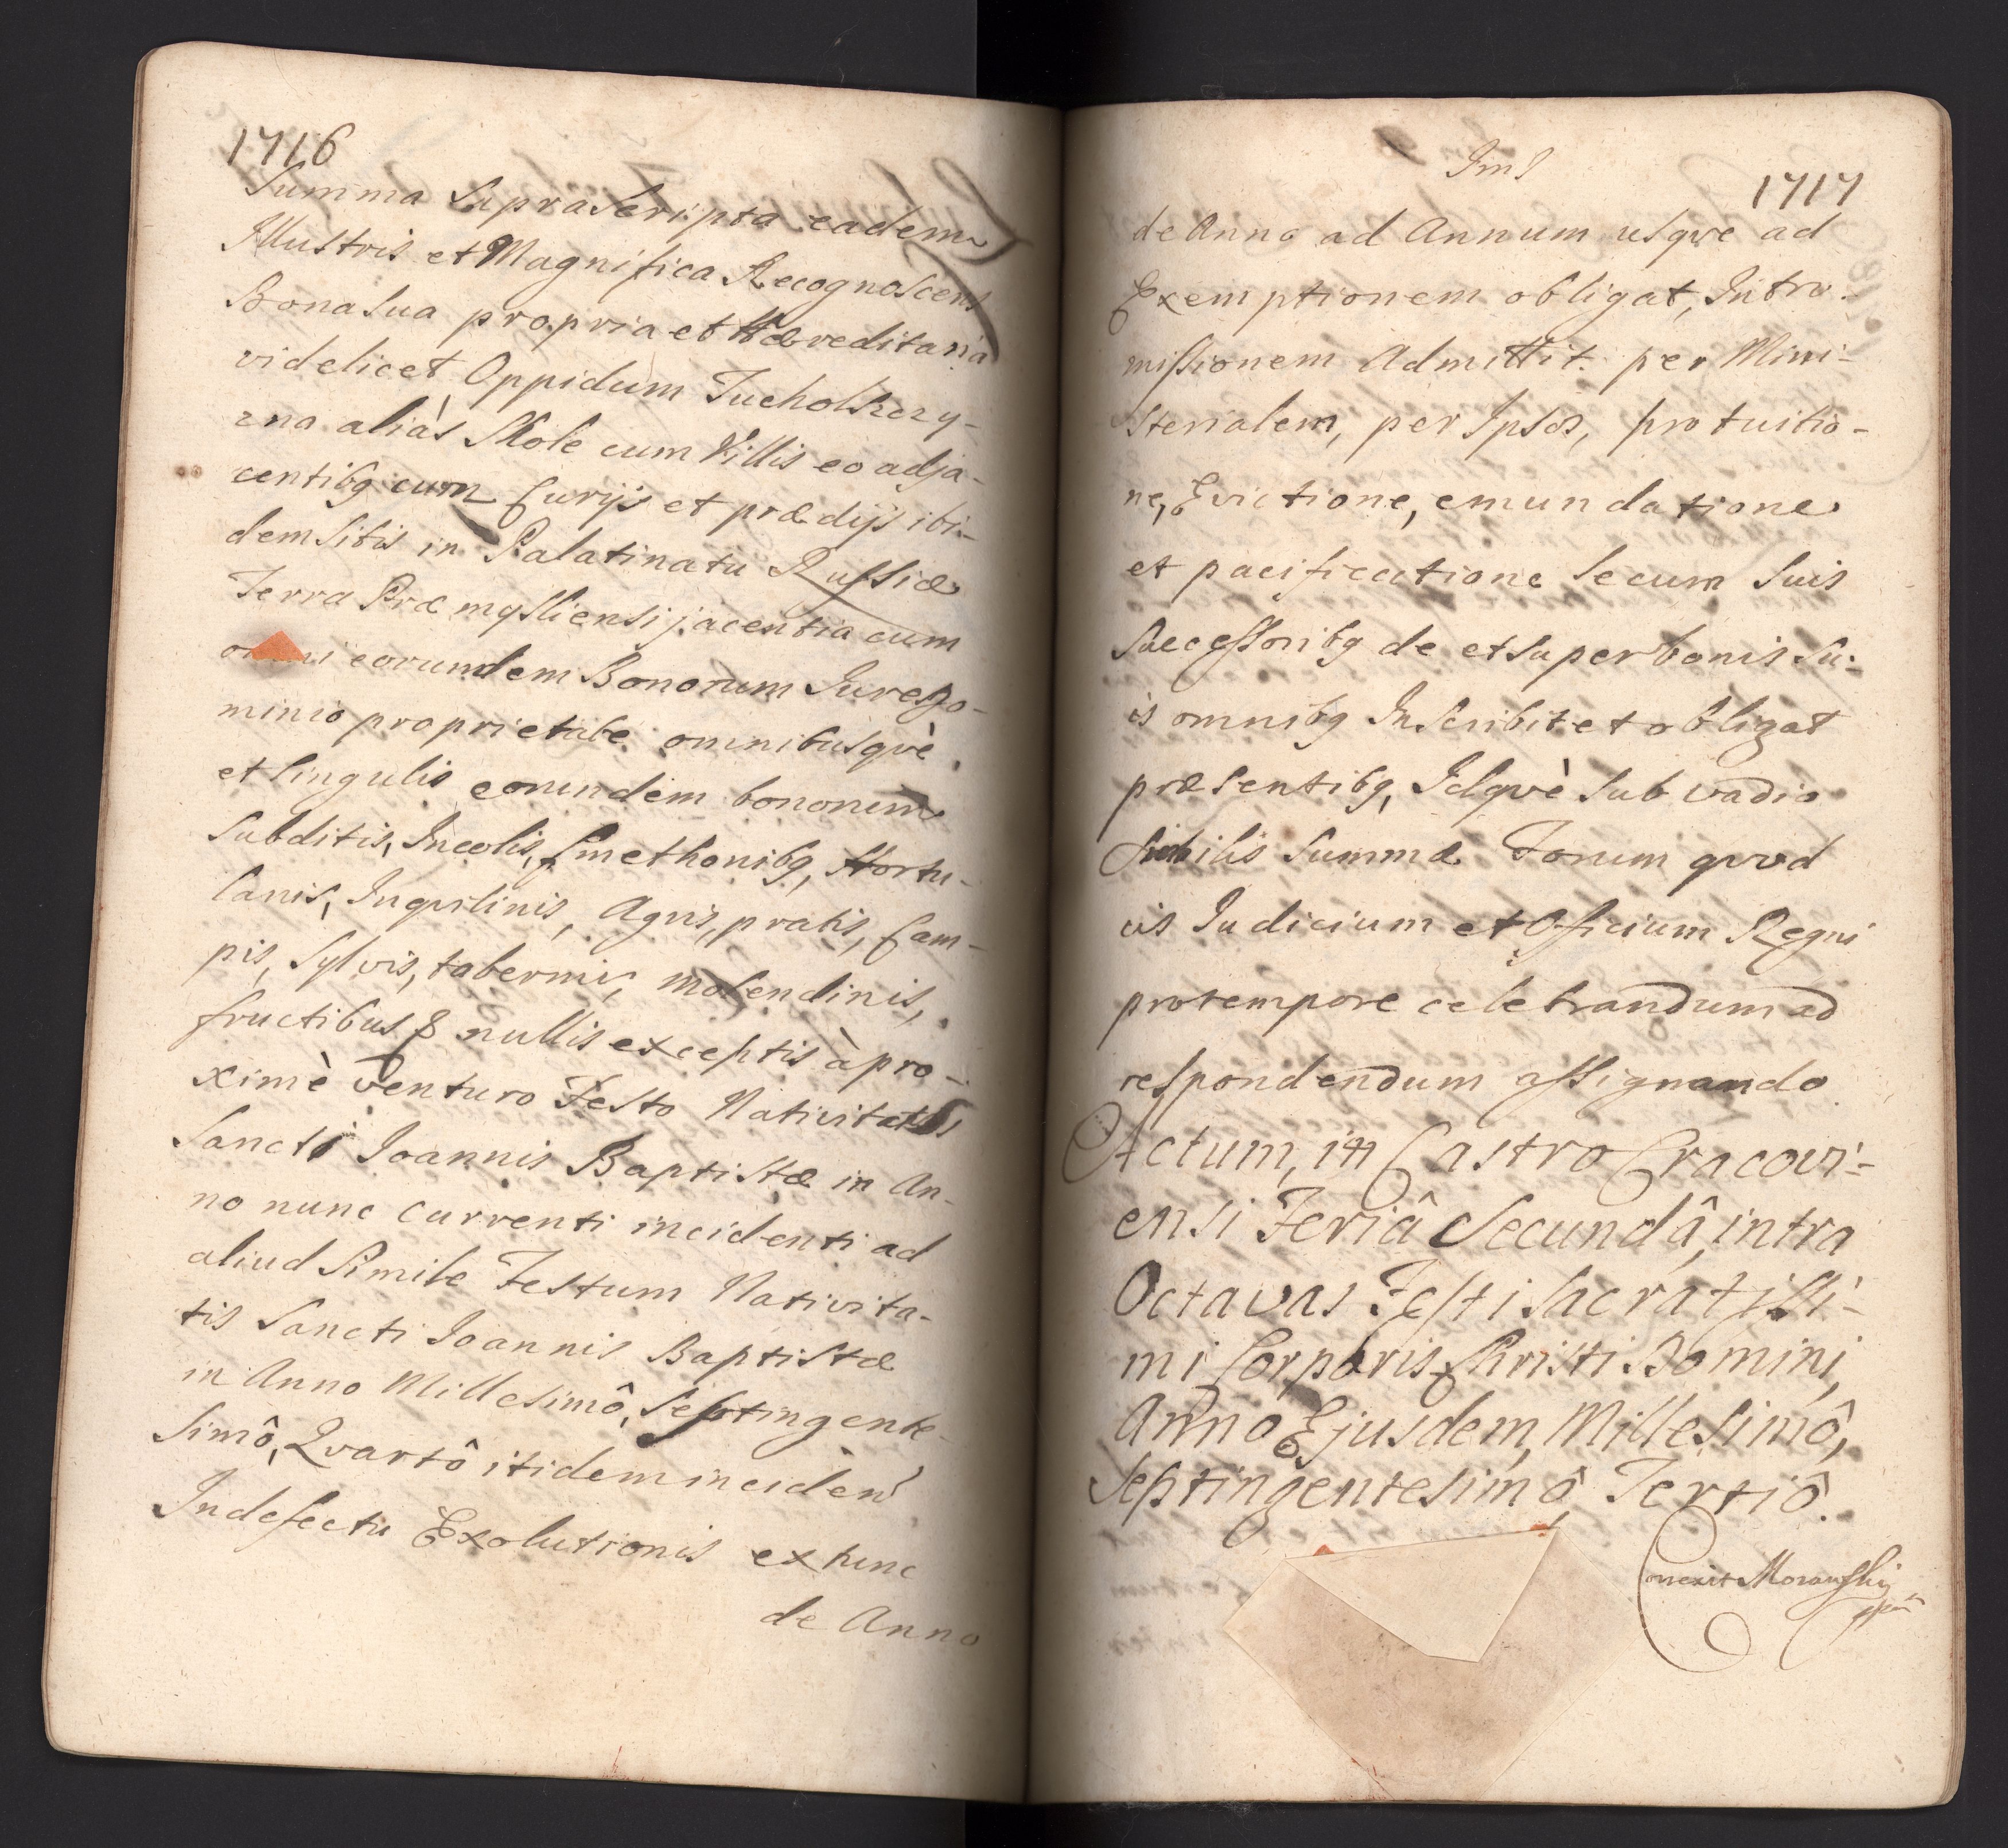 1716
Summa Supra Scripta eadem
Illustris et Magnifica Recognoscens
Bona Sua propria et Hæreditaria
videlicet Oppidum Tucholkczy-
zna aliàs Skole cum Villis eo adja-
centibq cum Curijs et prædijs ibi-
dem Sitis in Palatinatu Russiæ
Terra Præmysliensi jacentia cum
eorumdem Bonorum Jure Do-
minio proprietate omnibusqvè
et Singulis eorundem bonorum
Subditis, Incolis, Cmethonibq, Hortu-
lanis, Inqvilinis, Agris, pratis, Cam-
pis, Sylvis, tabernis, molendinis,
fructibus & nullis exceptis à pro-
ximè venturo Festo Nativitatis
Sancti Joannis Baptistæ in An-
no nunc currenti incidenti ad
aliud Simile Festum Nativita-
tis Sancti Joannis Baptistæ
in Anno Millesimô, Septingente-
simô, Qvartô itidem inciden
In defectu Exolutionis ex tunc
de Anno
1717
de Anno ad Annum usqve ad
Exemptionem obligat, Intro-
missionem Admittit per Mini-
sterialem, per Ipsos, pro tuitio-
ne, Evictione, emundatione
et pacificatione Se cum Suis
Successoribq de et super bonis Su-
is omnibq Inscribit et obligat
præsentibq, Idqvè Sub vadio
Similis Summæ Forum qvod
vis Judicium et Officium Regni
pro tempore celebrandum ad
respondendum assignando
Actum, in Castro Cracovi-
ensi Feriâ Secundâ, intra
Octavas Festi Sacratissi-
mi Corporis Christi Domini,
Anno Ejusdem, Millesimô,
Septingentesimô Tertiô.